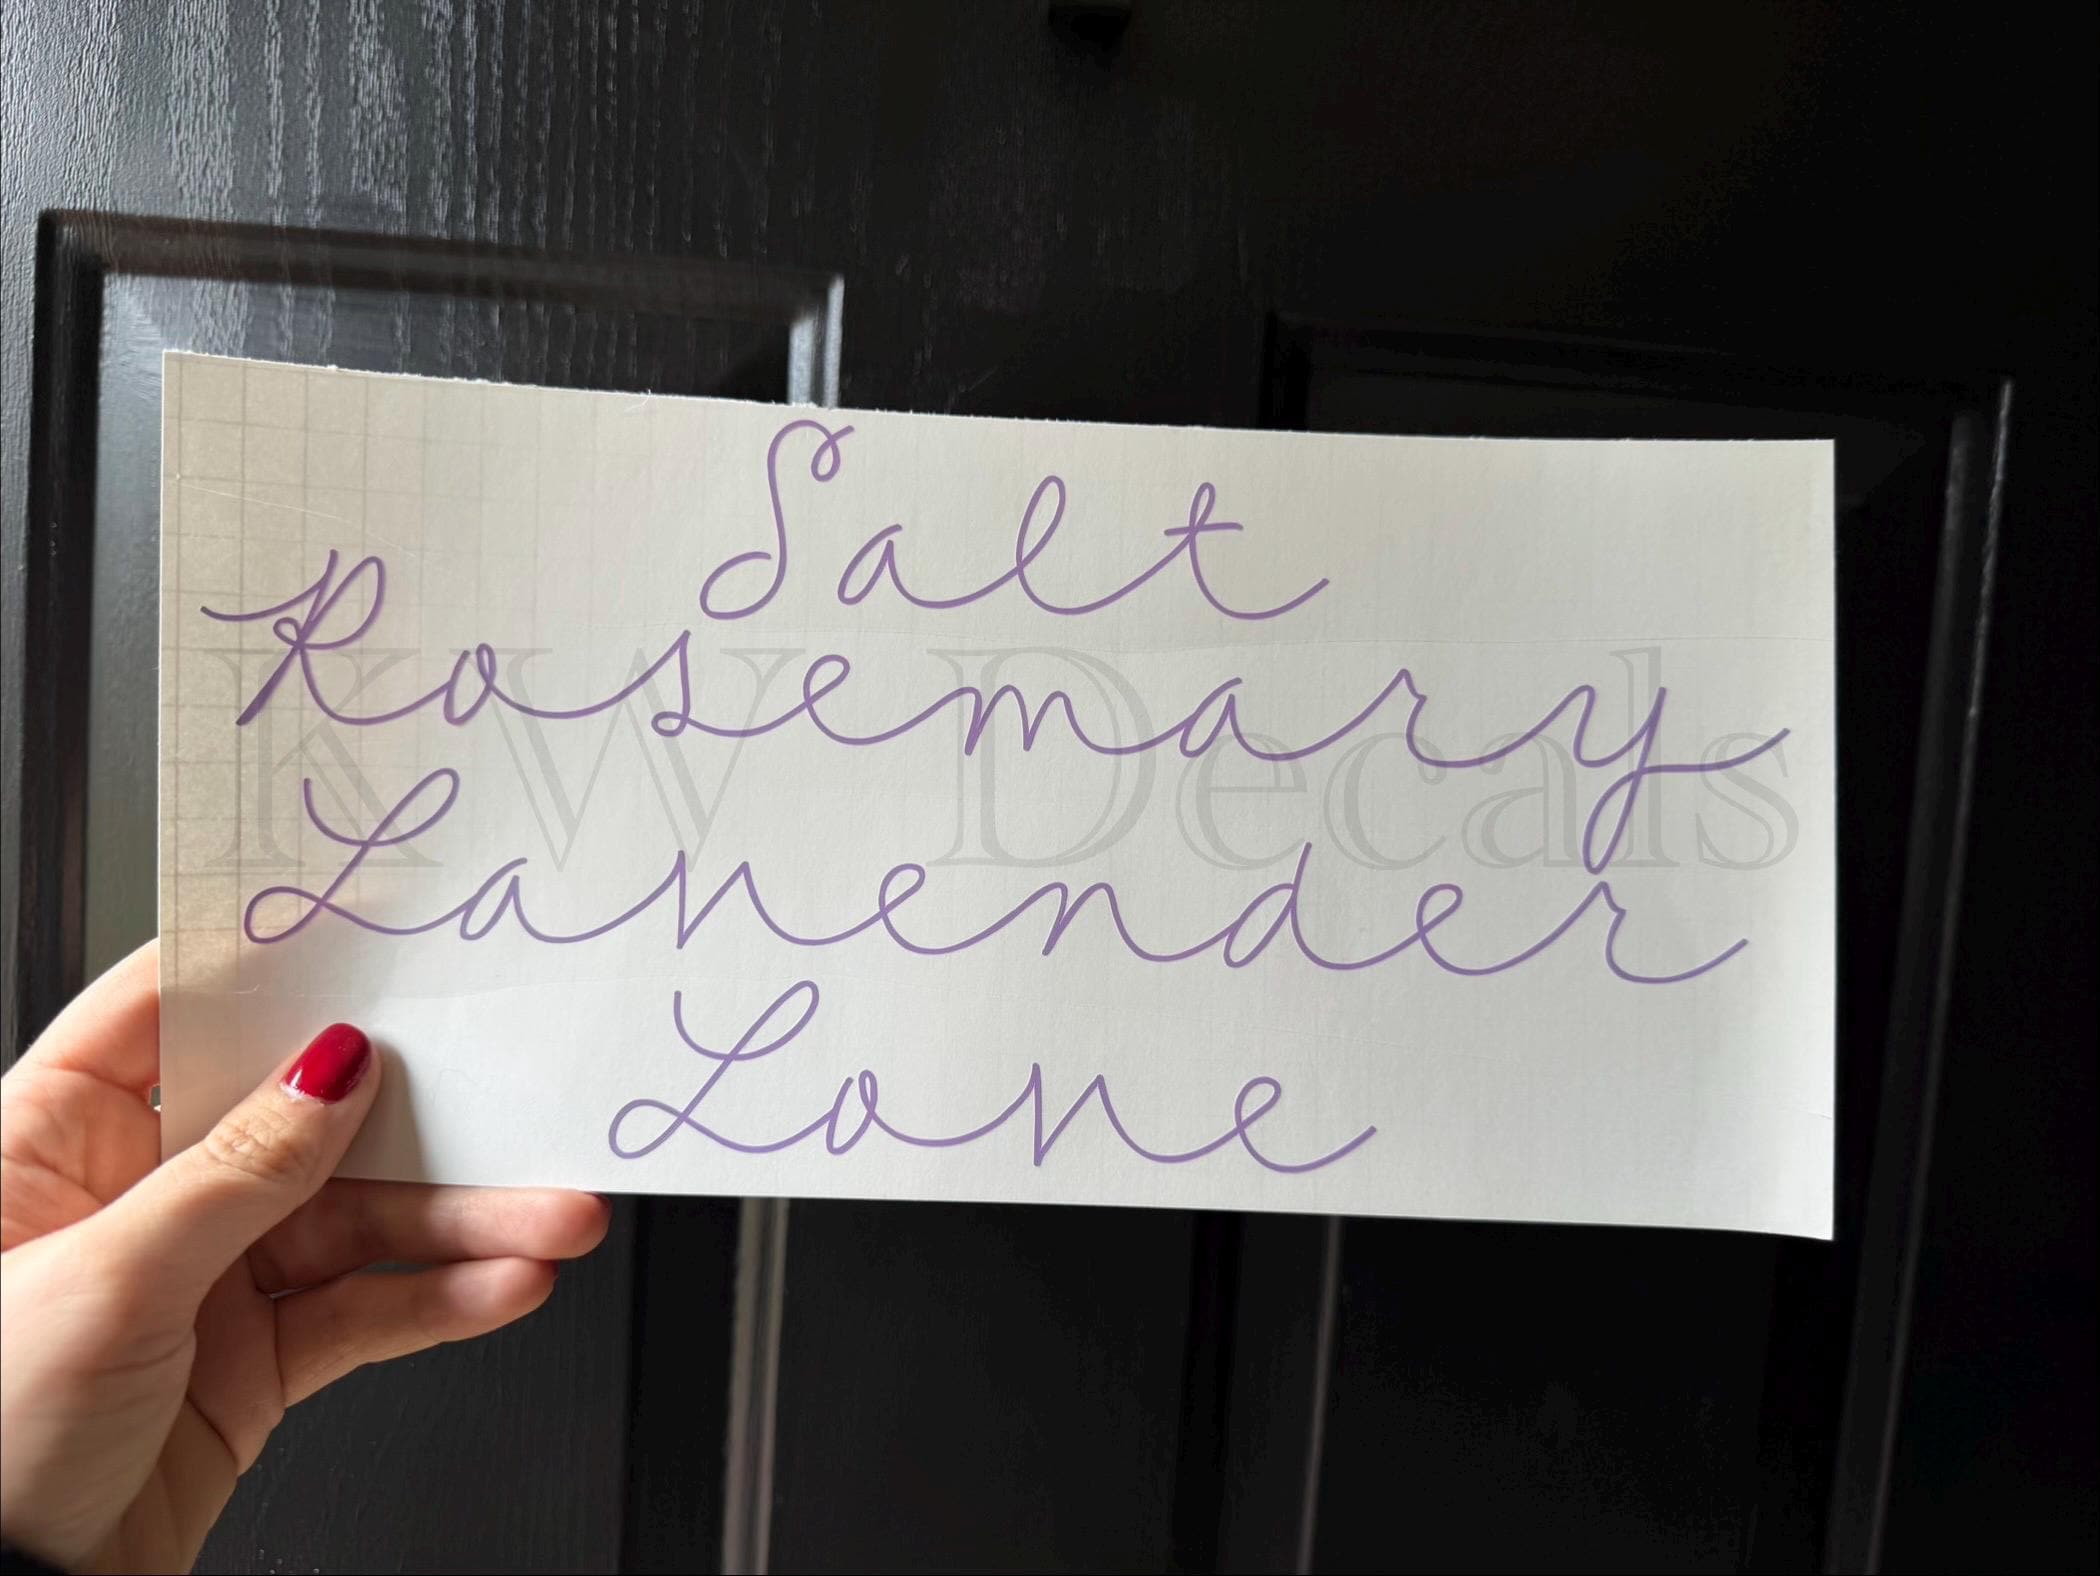 Salt
Rosemary
KW Decals
Lavender
Love